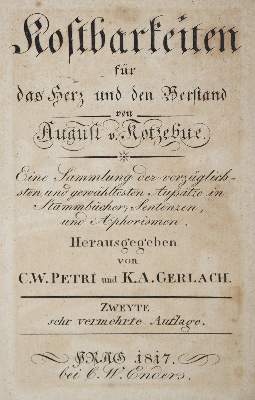 Kostbarkeiten
für
das Herz und den Verstand
von
August v. Kotzebue.
Eine Sammlung der vorzüglich-
sten und gewähltesten Aufsätze in
Stammbücher, Sentenzen,
und Aphorismen.
Herausgegeben
von
C.W. PETRI und K.A. GERLACH.
ZWEYTE
sehr vermehrte Auflage.
PRAG 1817.
bei C. W. Enders.